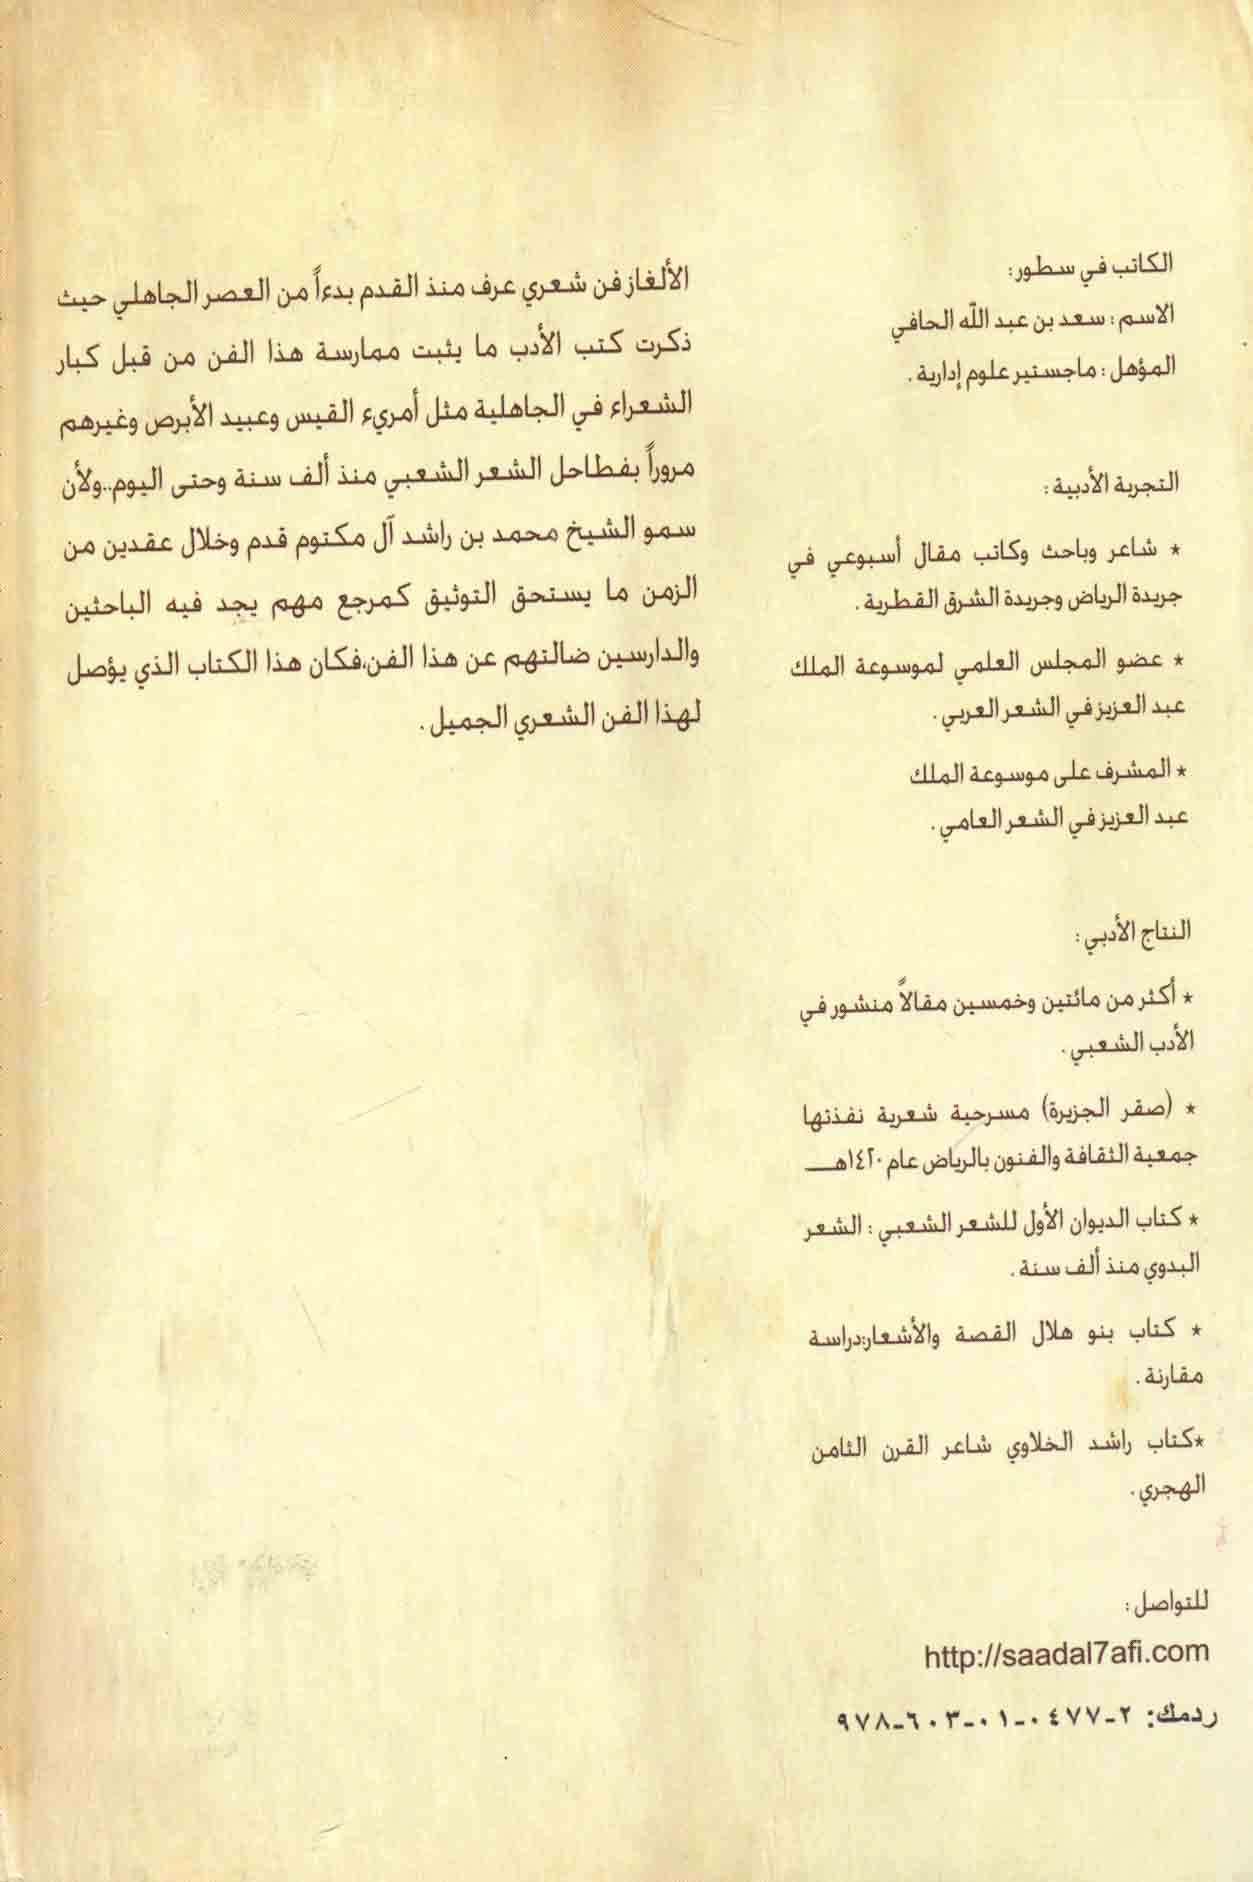 الكاتب في سطور:
الاسم: سعد بن عبد الله الحافي
المؤهل: ماجستير علوم إدارية.
التجربة الأدبية:
* شاعر وباحث وكاتب مقال أسبوعي في
جريدة الرياض وجريدة الشرق القطرية.
* عضو المجلس العلمي لموسوعة الملك
عبد العزيز في الشعر العربي.
* المشرف على موسوعة الملك
عبد العزيز في الشعر العامي.
النتاج الأدبي:
* أكثر من مائتين وخمسين مقالاً منشور في
الأدب الشعبي.
* (صقر الجزيرة) مسرحية شعرية نفذتها
جمعية الثقافة والفنون بالرياض عام ١٤٢٠هـــ
* كتاب الديوان الأول للشعر الشعبي: الشعر
البدوي منذ ألف سنة.
* كتاب بنو هلال القصة والأشعار:دراسة
مقارنة.
*كتاب راشد الخلاوي شاعر القرن الثامن
الهجري.
للتواصل:
http://saadal7afi.com
ردمك: ٢-٠٤٧٧-٠١-٦٠٣-٩٧٨
الألغاز فن شعري عرف منذ القدم بدءاً من العصر الجاهلي حيث
ذكرت كتب الأدب ما يثبت ممارسة هذا الفن من قبل كبار
الشعراء في الجاهلية مثل أمريء القيس وعبيد الأبرص وغيرهم
مروراً بفطاحل الشعر الشعبي منذ ألف سنة وحتى اليوم..ولأن
سمو الشيخ محمد بن راشد آل مكتوم قدم وخلال عقدين من
الزمن ما يستحق التوثيق كمرجع مهم يجد فيه الباحثين
والدارسين ضالتهم عن هذا الفن،فكان هذا الكتاب الذي يؤصل
لهذا الفن الشعري الجميل.